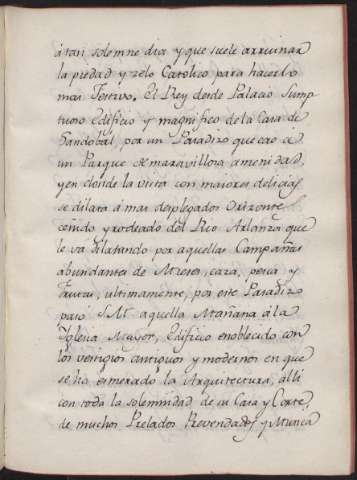 átan solemne dia y que suele arruinar
la piedad y zelo Catolico para hacerlo
mas festivo. El Rey desde Palacio Sump
tuoso Edificio y magnifico de la Casa de
Sandobal, por un Pasadizo que cae á
un Parque de maravillosa amenidad,
y en donde la vista con maiores delicias
se dilata á mas desplegados Orizonte
ceñido y rodeado del Rio Arlanza que
le va dilatando por aquellas Campañas
abundantes de Mieses, caza, pesca y
frutas, ultimamente, por este Pasadizo
paso S.M. aquella Mañana á la
Iglesia Mayor, Edificio enoblecido con
los vestigios antiguos y modernos en que
se ha esmerado la Arquitectura, alli
con toda la solemnidad de su Casa y Corte,
de muchos Prelados Revendados y Musica